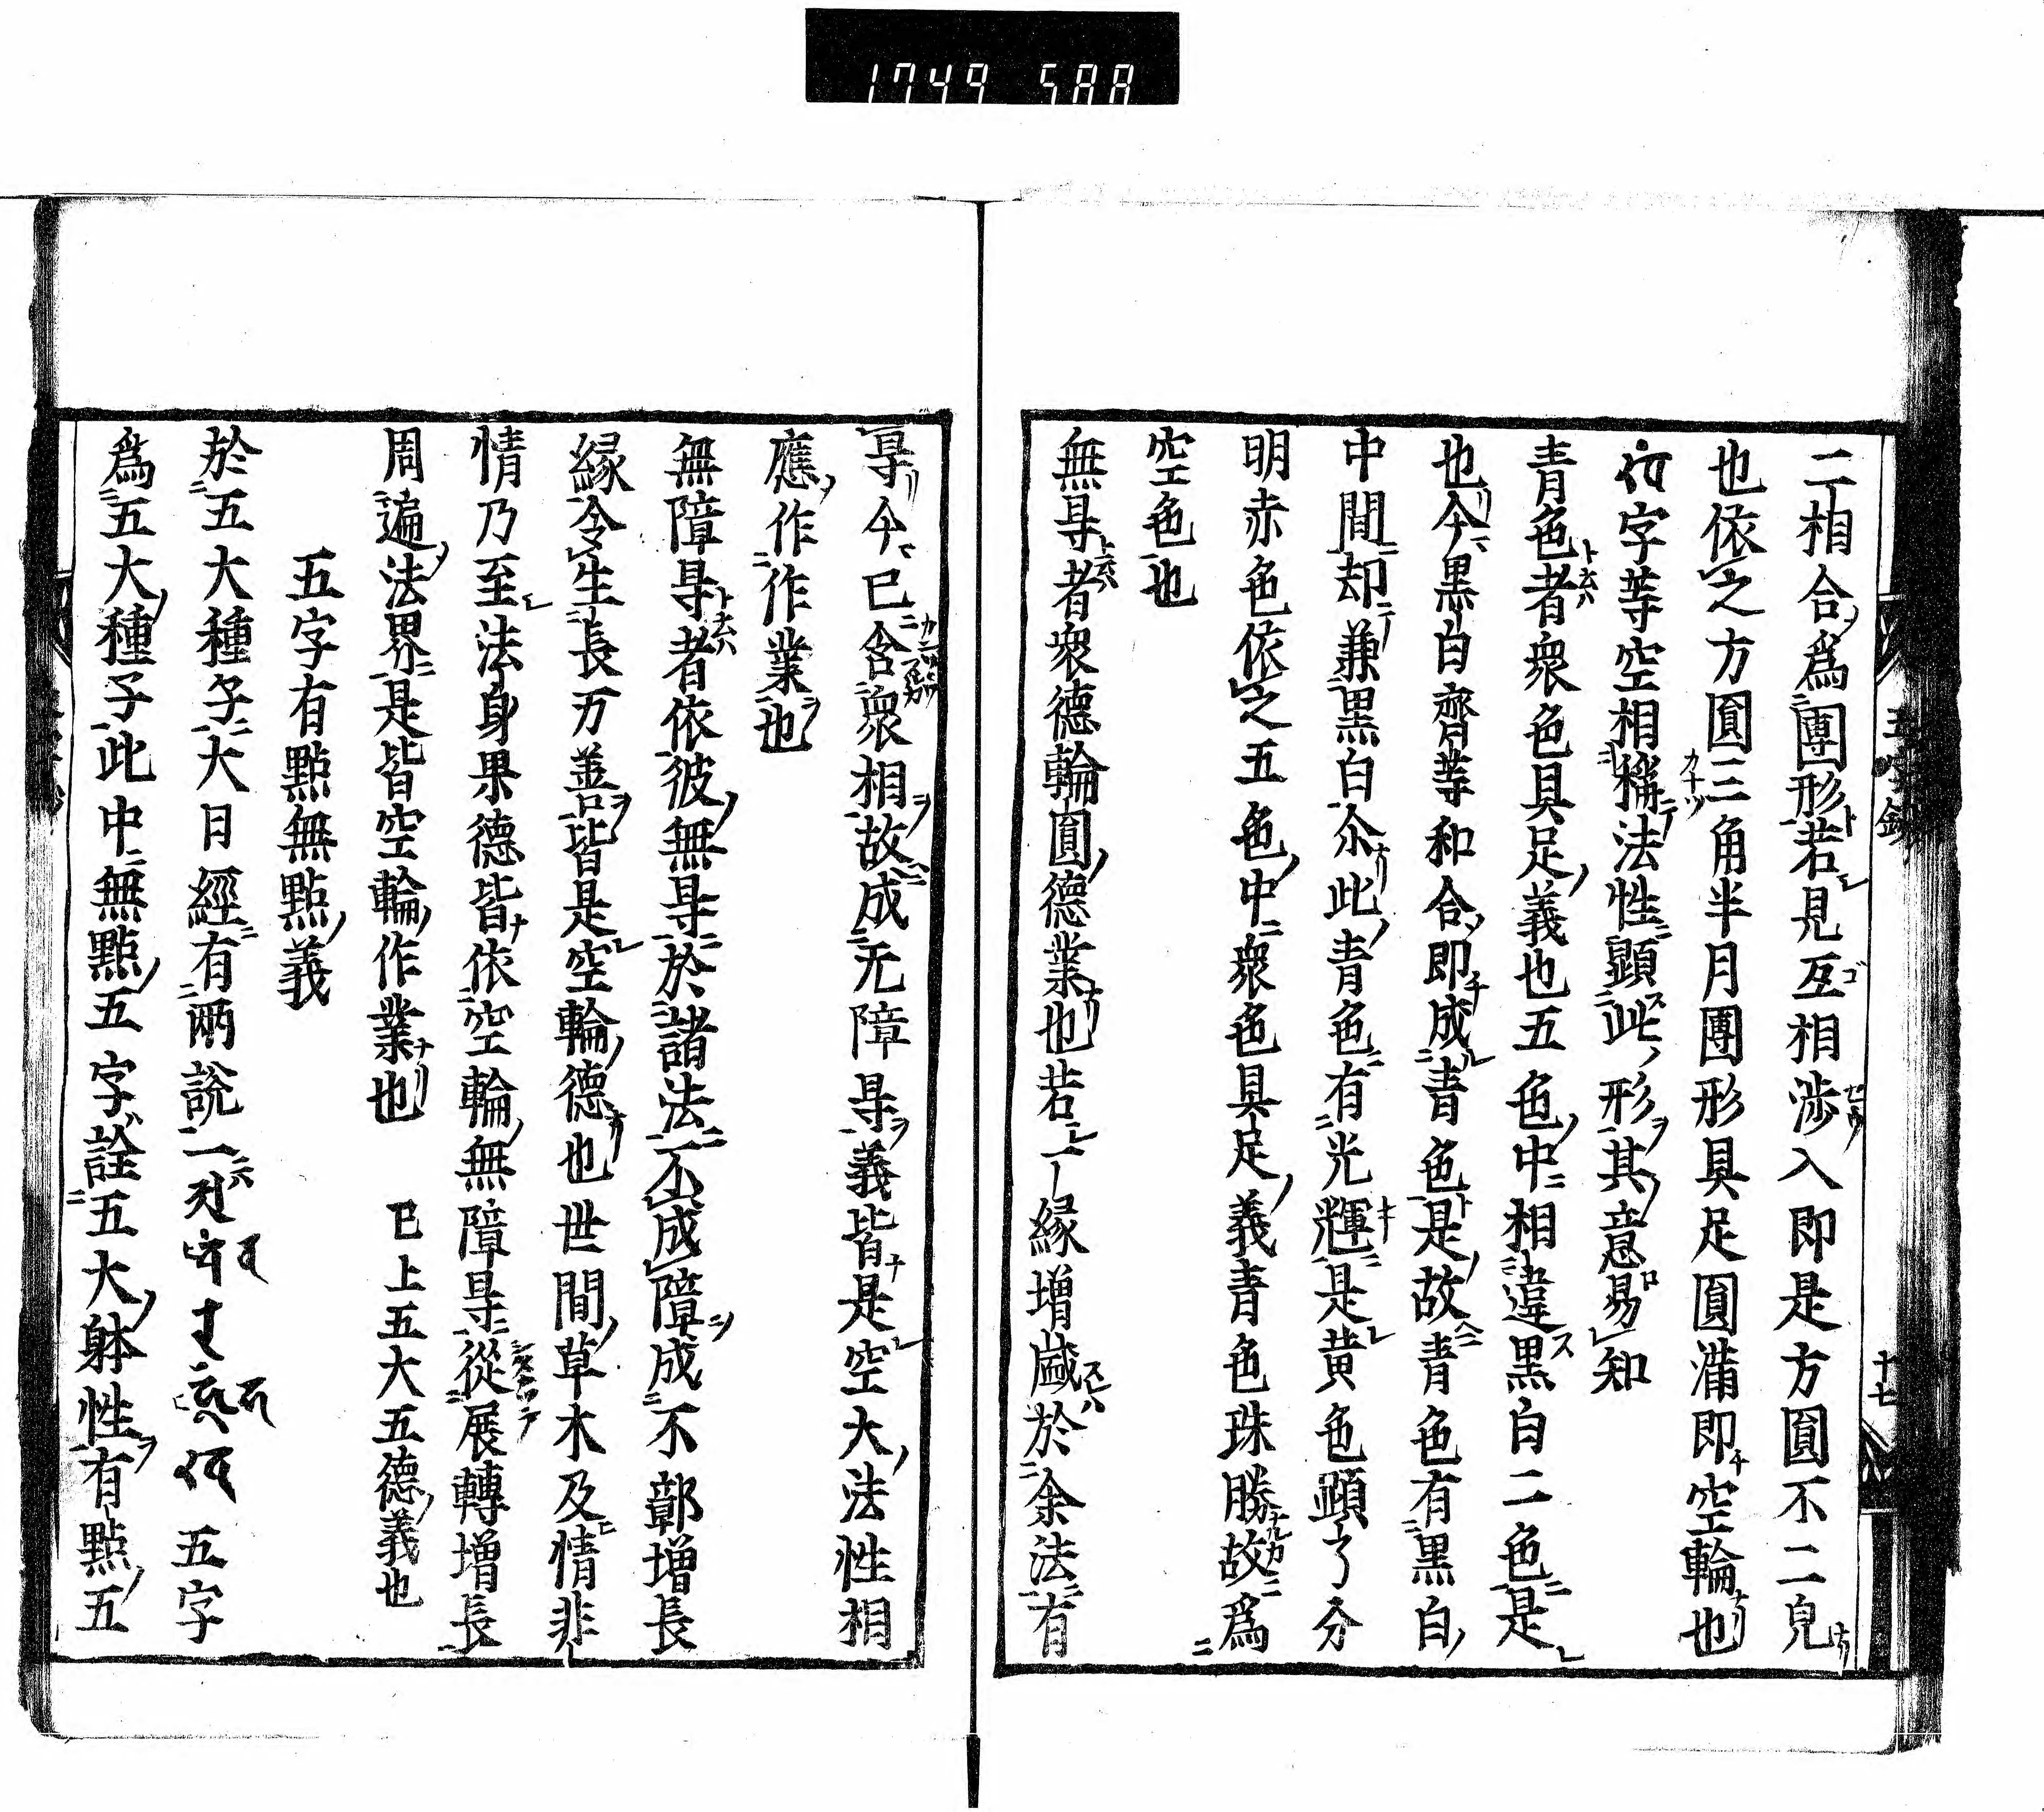 1749 588
二相合爲團形若見互相渉入即是方圓不二皃
也依之方圓三角半月團形具足圓滿即空輪也
字等空相稱法性顕此形其意易知
青色者衆色具足義也五色中相違黒白二色是
也今黒白齊等和合即成青色是故青色有黒白
中間却兼黒白尒此青色有光輝是黄色顕了分
明赤色依之五色中衆色具足義青色珠勝故爲
空色也
無㝵者衆德輪圓德業也若一縁增減於余法有
㝵今已含衆相故成无障㝵義皆是空大法性相
應作作業也
無障㝵者依彼無㝵於諸法不成障成不鄣增長
縁令生長万善皆是空輪德也世間草木及情非
情乃至法身果德皆依空輪無障㝵從展轉增長
周遍法界是皆空輪作業也 已上五大五德義也
五字有點無點義
於五大種子大日經有兩説一 五字
爲五大種子此中無點五字詮五大躰性有點五
十七